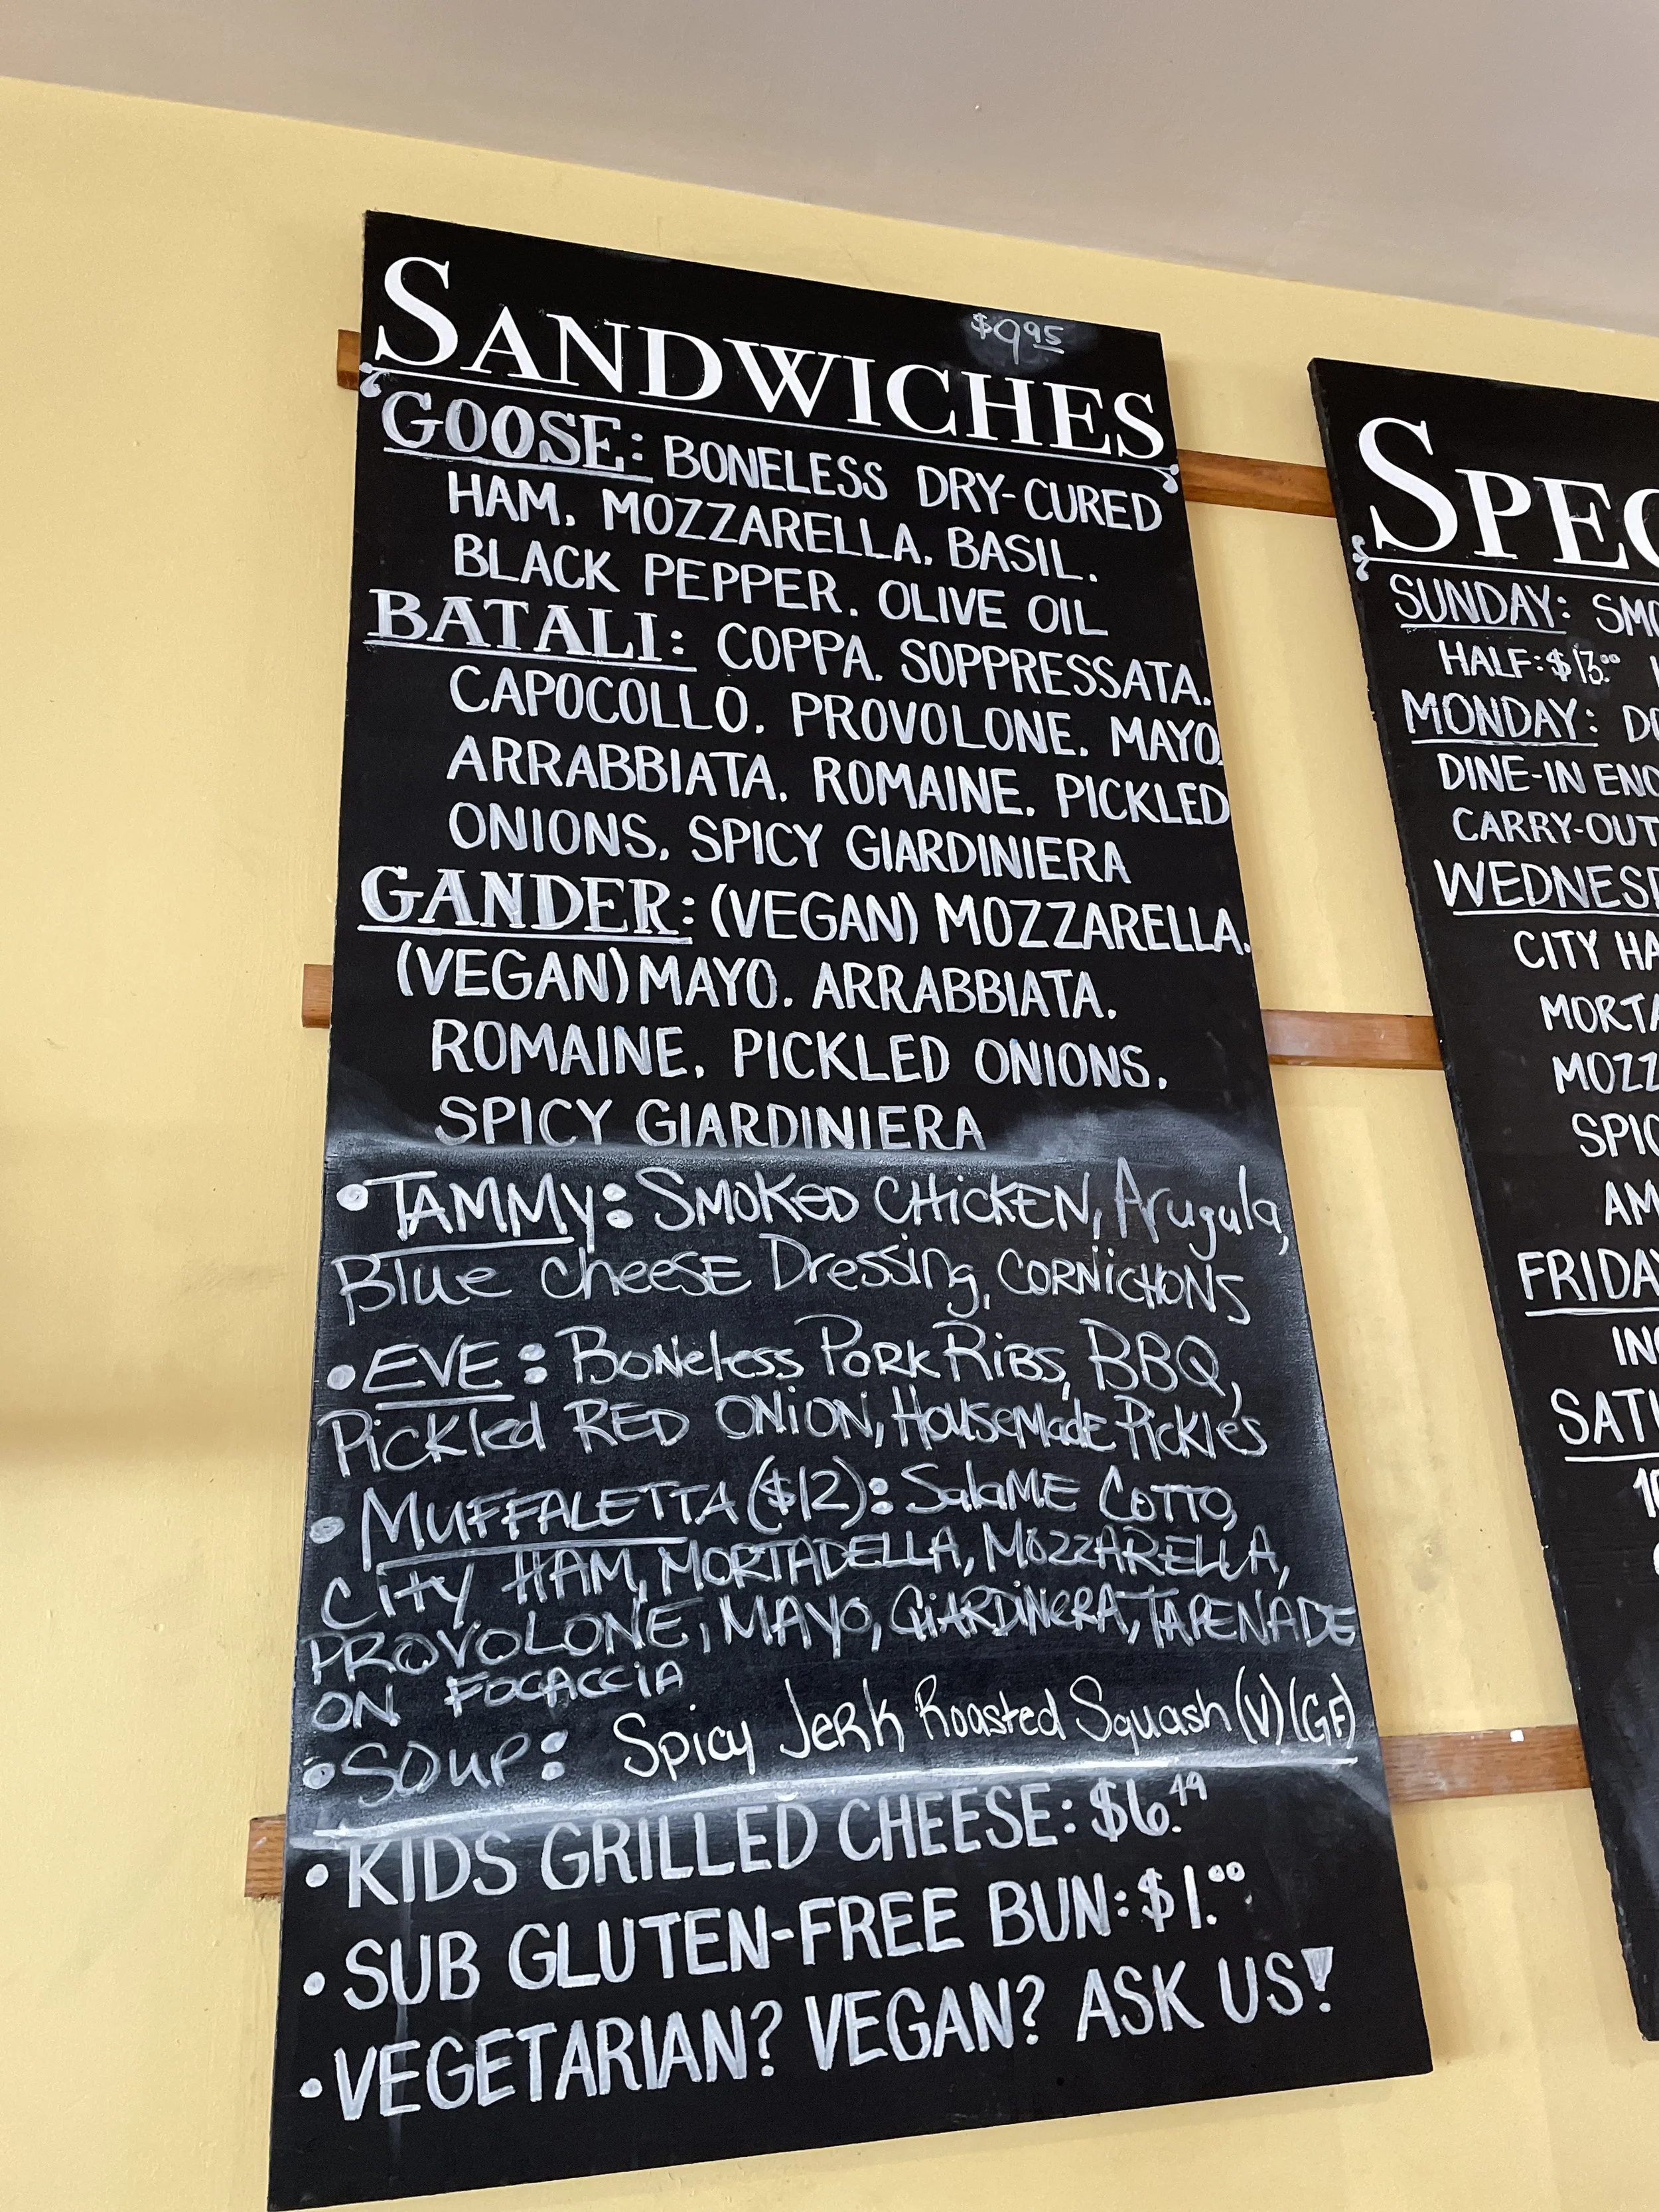 $9.95
SANDWICHES
GOOSE: BONELESS DRY-CURED
HAM. MOZZARELLA. BASIL.
BLACK PEPPER. OLIVE OIL
BATALI: COPPA. SOPPRESSATA.
CAPOCOLLO. PROVOLONE. MAYO.
ARRABBIATA. ROMAINE. PICKLED
ONIONS. SPICY GIARDINIERA
GANDER: (VEGAN) MOZZARELLA.
(VEGAN) MAYO. ARRABBIATA.
ROMAINE. PICKLED ONIONS.
SPICY GIARDINIERA
• TAMMY: SMOKED CHICKEN, Arugula,
Blue cheese Dressing, CORNICHONS
• EVE: Boneless Pork Ribs, BBQ,
Pickled RED ONION, Housemade Pickles
• MUFFALETTA ($12): Salame COTTO,
City HAM, MORTADELLA, MOZZARELLA,
PROVOLONE, MAYO, GIARDINERA, TAPENADE
ON FOCACCIA
• SOUP: Spicy Jerk Roasted Squash (V) (GF)
• KIDS GRILLED CHEESE: $6.49
• SUB GLUTEN-FREE BUN: $1.00
• VEGETARIAN? VEGAN? ASK US!
SPEC
SUNDAY: SMO
HALF: $13.00
MONDAY: DO
DINE-IN ENC
CARRY-OUT
WEDNESD
CITY HA
MORTA
MOZZ
SPIC
AM
FRIDAY
INC
SATU